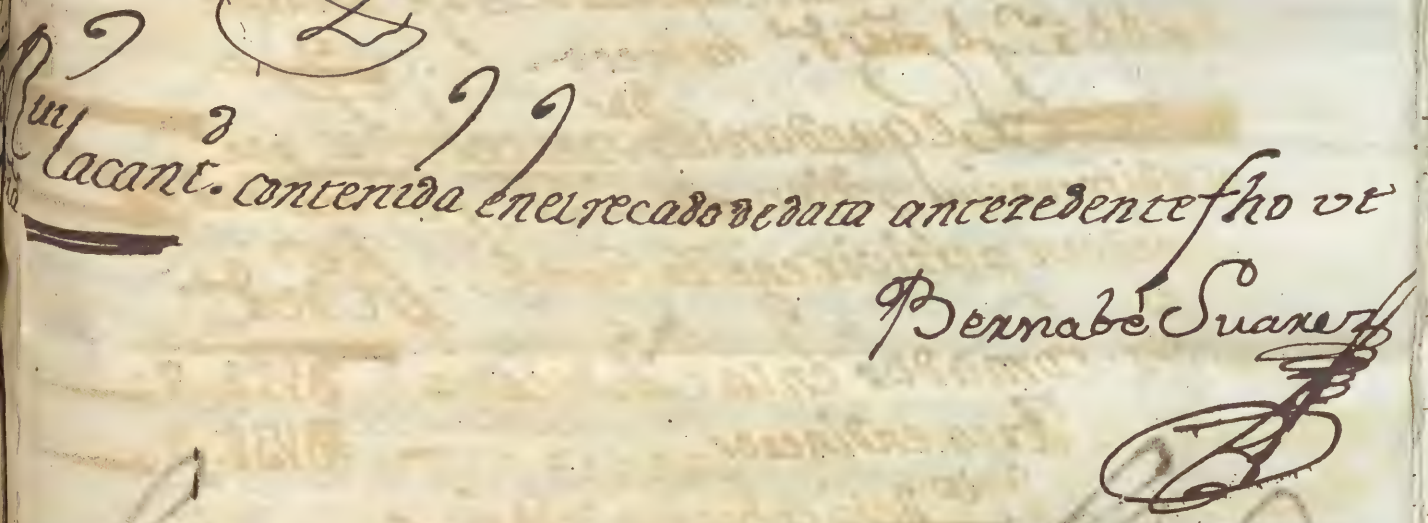 Rui
la cant.ᵈ contenida en el recado de data antezedente fho ut
Bernabé Suarez